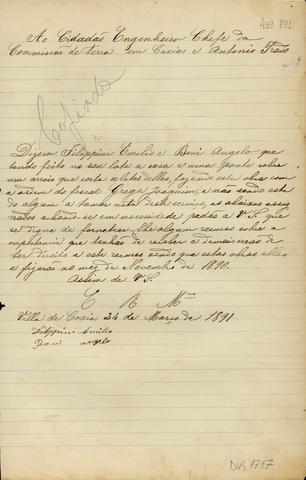 439 891
Ao Cidadão Engenheiro Chefe da
Commissão de terra em Caxias e Antonio Prado
Copiado
Dizem Filippini Emilio e Boni Angelo que
tendo feito no seu lote a casa e uma ponte sobre
um arroio que corta o lote delles, fazendo esta obra com
a ordem do fiscal Grega Joaquim, e não sendo este
do algum a tomar nota deste serviço, os abaixos assig
nados achando-se em necessidade pedão a V.S. que
se digne de fornecer-lhe algum recurso sobre a
importancia que tenhão de receber e demais
ter direito a este recurso sendo que estas obras elles
a fizerão no mez de Novembro de 1890.
Assim de V.S.
E R M
Villa de Caxia 24 de Março de 1891
Filippini Emilio
Boni angelo
DIR 1717